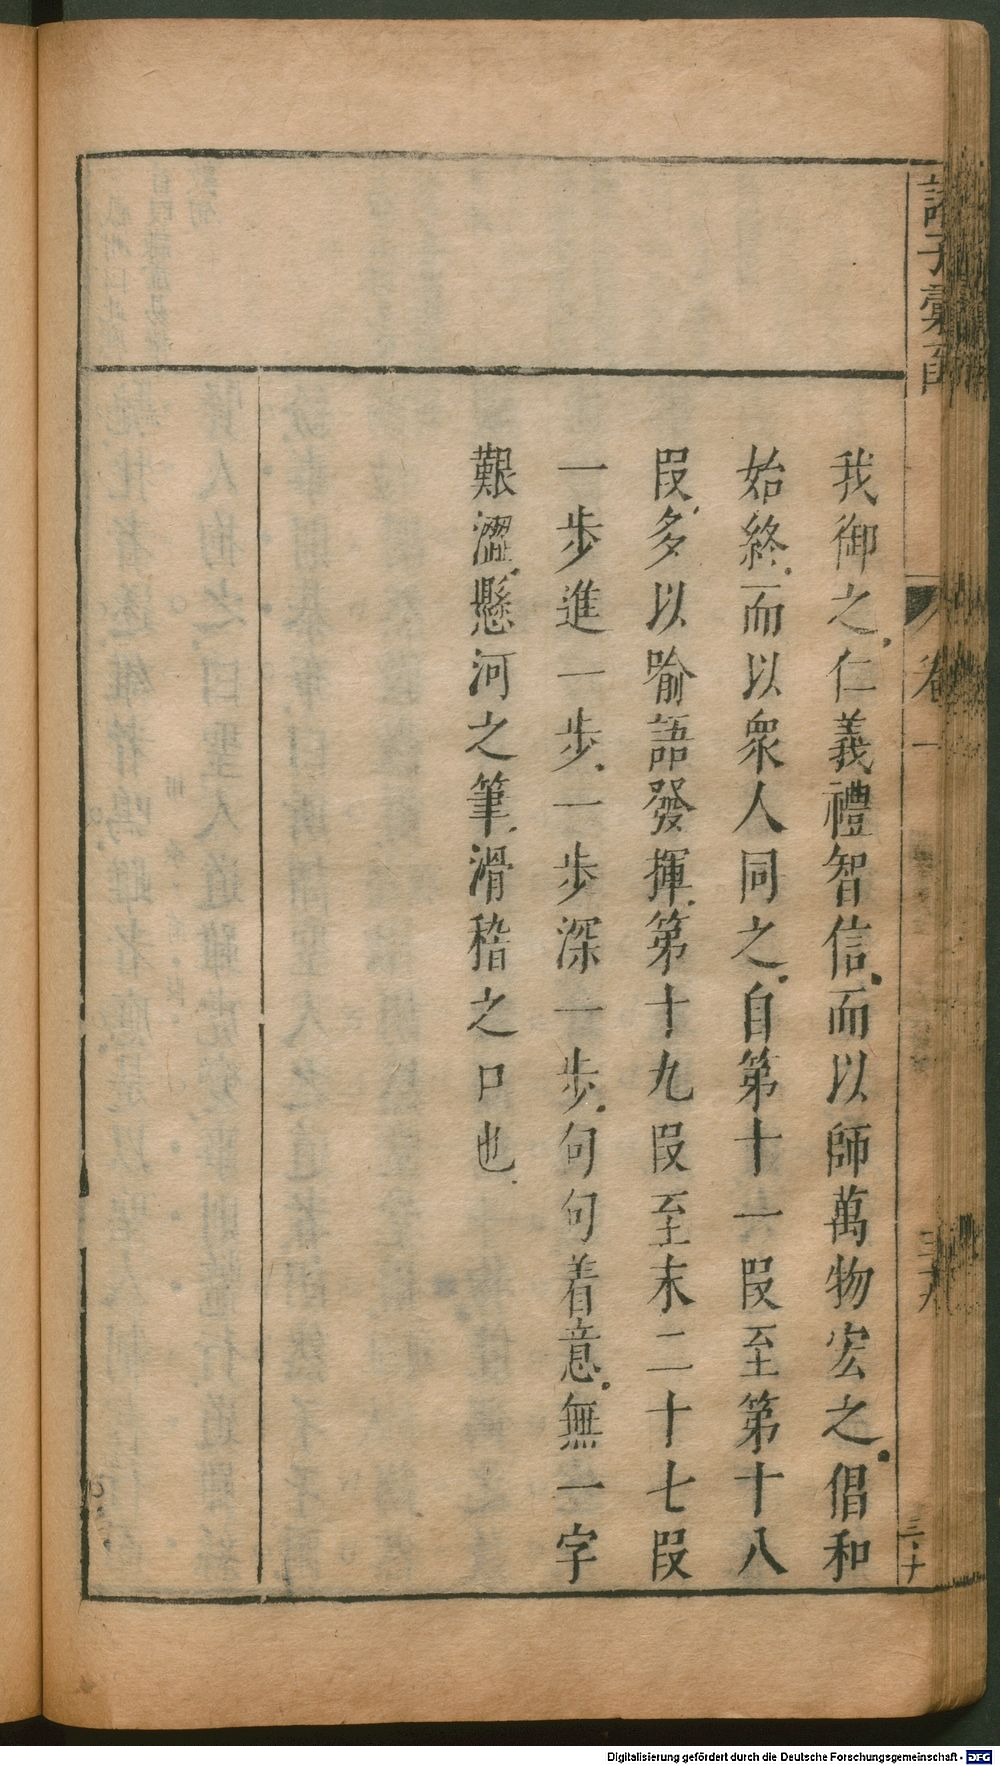 諸子彙函
卷一
我御之仁義禮智信而以師萬物宏之倡和
始終而以衆人同之自第十一段至第十八
段多以喻語發揮第十九段至末二十七段
一步進一步一步深一步句句着意無一字
艱澀懸河之筆滑稽之口也
Digitalisierung gefördert durch die Deutsche Forschungsgemeinschaft - DFG